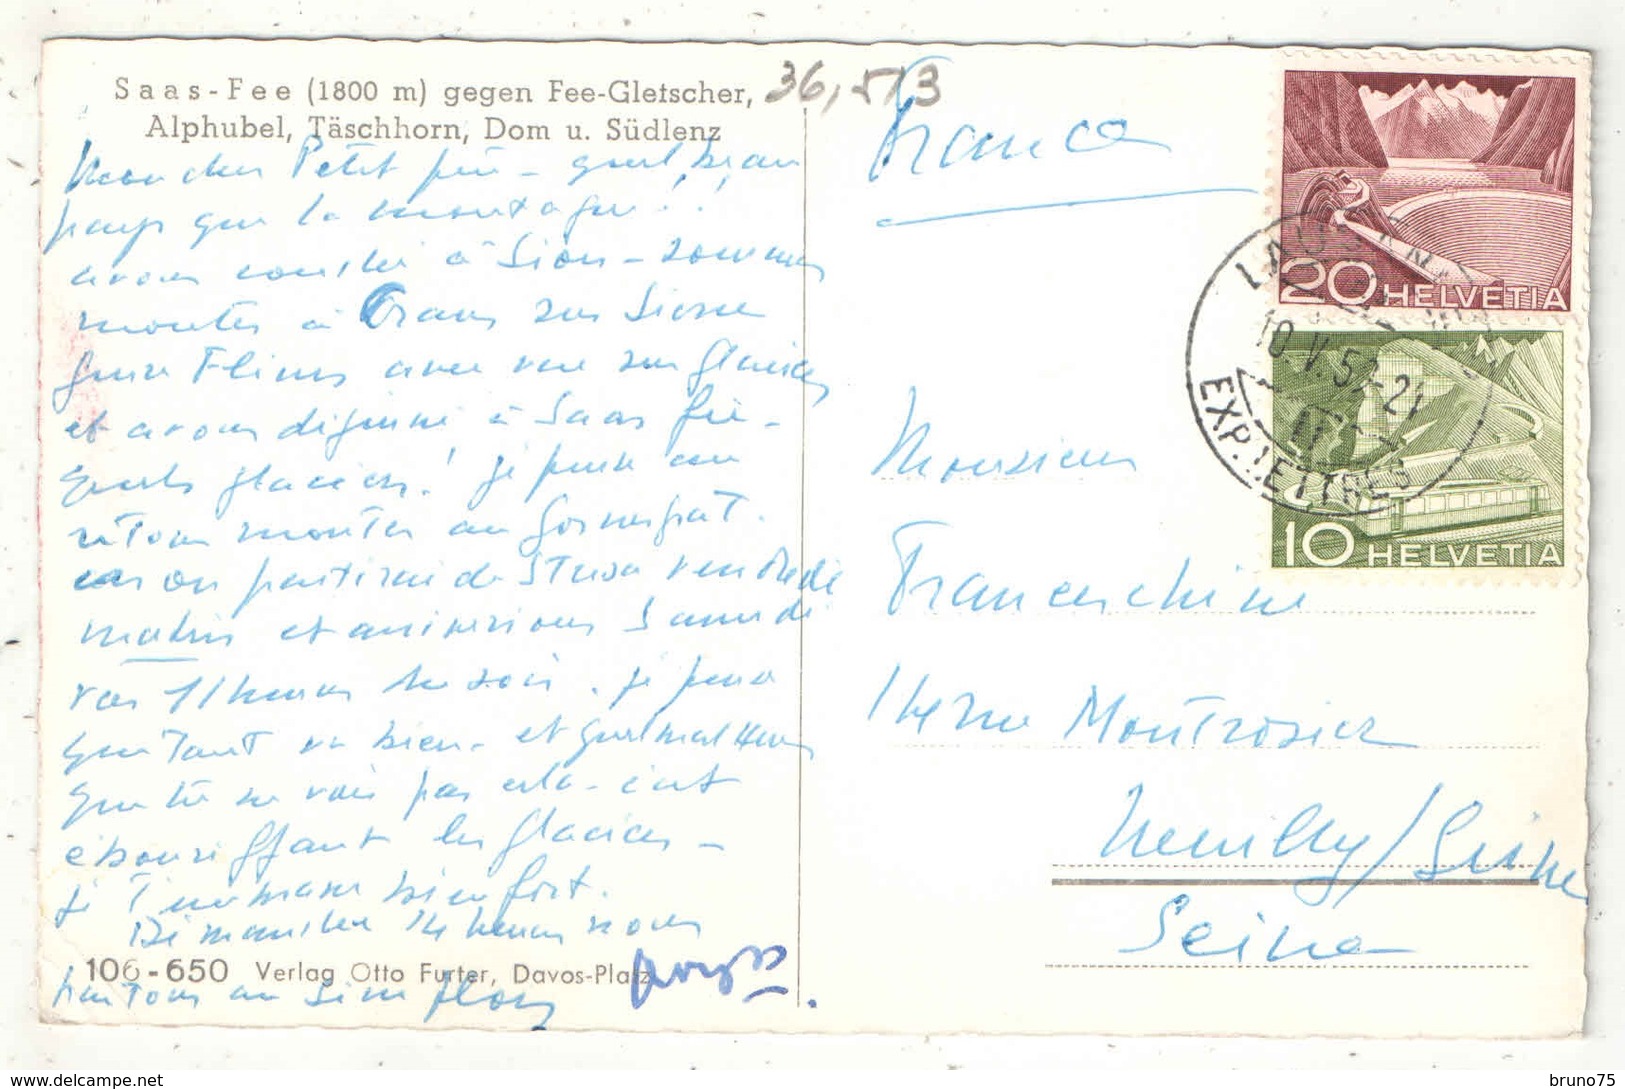 Saas-Fee (1800 m) gegen Fee-Gletscher,
Alphubel, Täschhorn, Dom u. Südlenz
36,5/3
Mon cher Petit quel beau
pays que la montagne!!
avons à Sion - sommes
montés à Crans sur Sierre
Flims avec vue sur glaciers
et avons déjeuné à Saas Fee -
quels glaciers! je pense au
retour monter au Gornergrat.
on partirai de vendredi
matin et arriverions Samedi
vers 11 heures du soir. je pense
que tout va bien - et quel malheur
que tu ne vois pas cela - c'est
ébouriffant les glaciers -
je t'embrasse bien fort.
Dimanche 14 heures nous
partons au Simplon
106-650 Verlag Otto Furter, Davos-Platz
France
20 HELVETIA
10 HELVETIA
10.V.52-21
EXP. LETTRES
Monsieur
Franceschini
14 Montrosier
Neuilly/Seine
Seine
bruno75